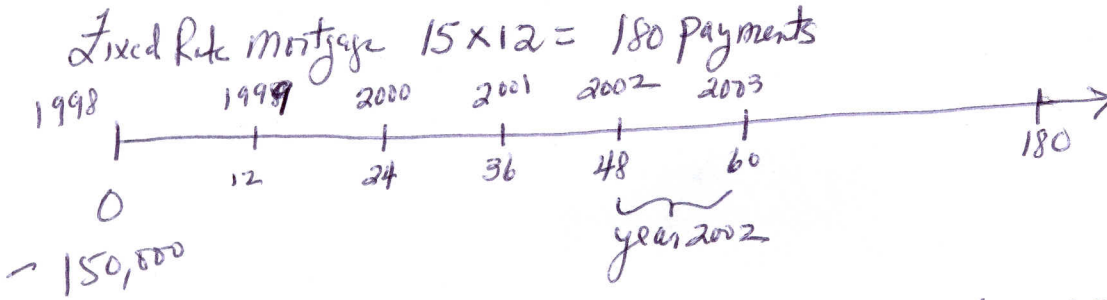 Fixed Rate mortgage 15 x 12 = 180 payments
1998 1999 2000 2001 2002 2003
12 24 36 48 60 180
0
year 2002
- 150,000